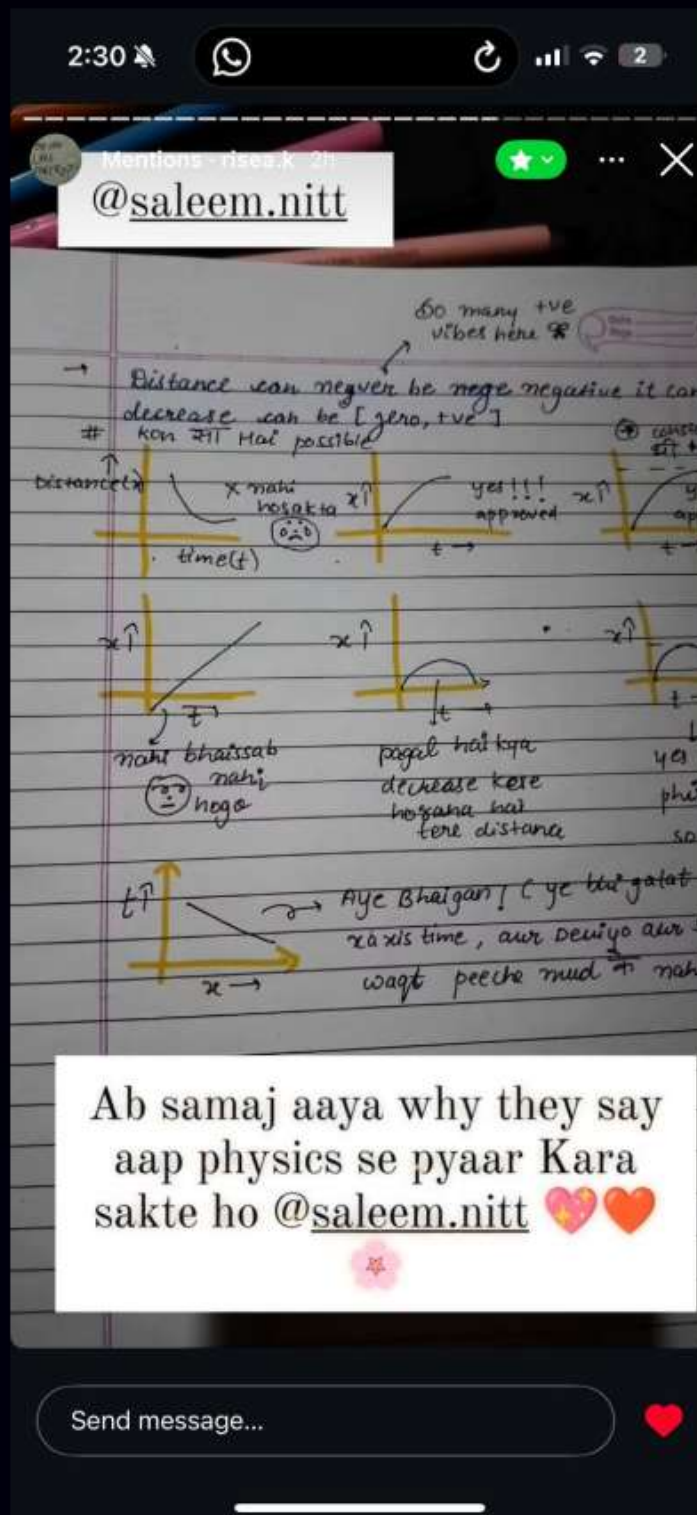 2:30
2
Mentions · risea.k 2h
@saleem.nitt
So many +ve
vibes here
→ Distance can negver be nege negative it can
decrease can be [zero, +ve]
# kon सा Hai possible
Distance(x)
x nahi
hosakta
time(t)
x↑
yes!!!
approved
t →
x↑
t →
x↑
t →
nahi bhaissab
nahi
hogo
x↑
t
pagal hai kya
decrease kese
tere distana
x↑
t
yes
t↑
x →
Aye Bhaigan! ( ye bhi galat
x axis time, aur Deviyo aur
waqt peeche mud के nah
Ab samaj aaya why they say
aap physics se pyaar Kara
sakte ho @saleem.nitt 💖❤️
🌸
Send message...